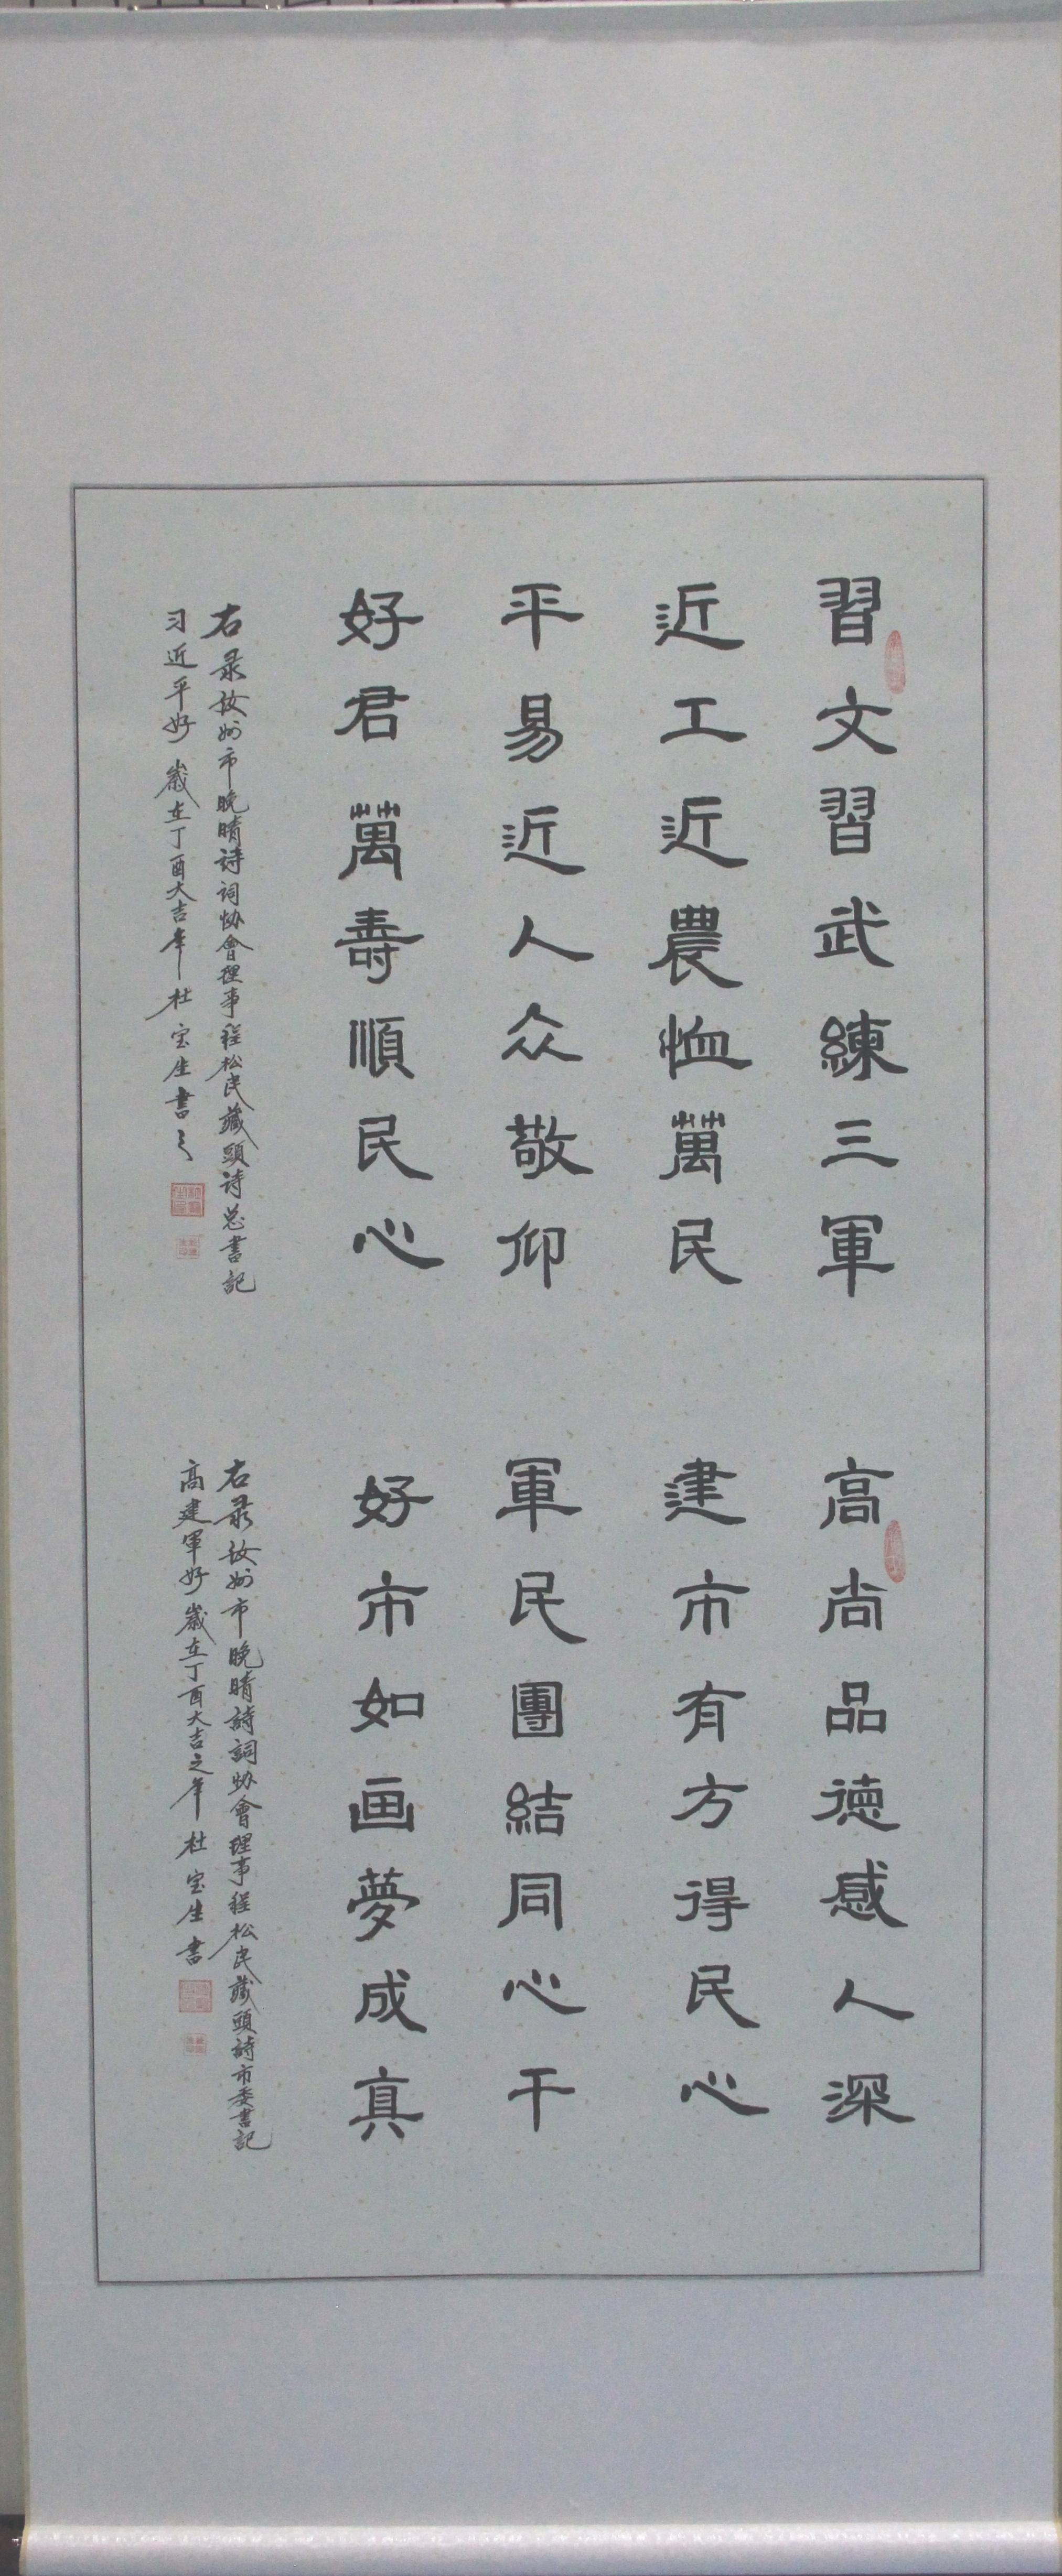 習文習武練三軍
近工近農恤萬民
平易近人众敬仰
好君萬壽順民心
右录汝州市晚晴诗词协會理事程松民藏頭诗总書記
习近平好 歲在丁酉大吉年 杜宝生書之
高尚品德感人深
建市有方得民心
軍民團結同心干
好市如画夢成真
右录汝州市晚晴詩詞协會理事程松民藏頭詩市委書記
高建軍好 歲在丁酉大吉之年 杜宝生書